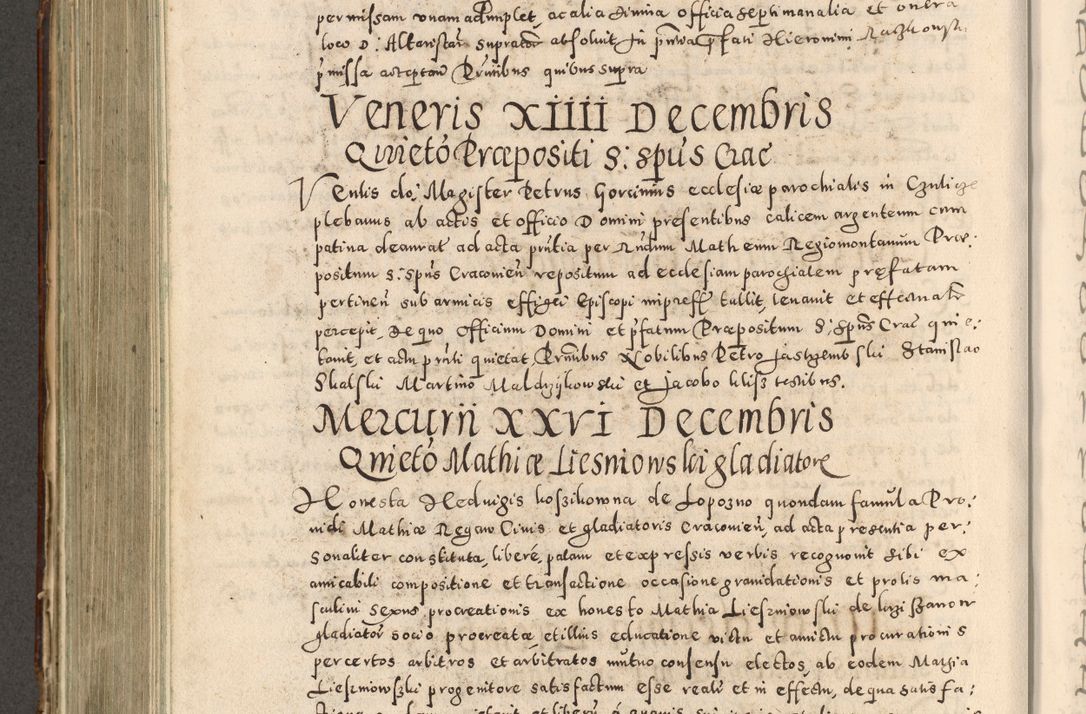 permissam unam adimplet, ac alia divina officia septimanalia et onera
loco D: Altaristar suprad absolvit In pntia pfati Hieronimi
pmissa acceptan Pntibus quibus supra
Veneris XIIII Decembris
Quietō Præpositi S: Spūs Crac
Venlis do: Magister Petrus Gorcinius ecclesiæ parochialis in Czulice
plebanus ab actis et officio Domini presentibus calicem argenteum cum
patina deaurat ad acta pntia per Rndum Matheum Regiomontanum Præ:
positum S: Spūs Cracovien repositum ad ecclesiam parochialem præfatam
pertinen sub armicis effigei Episcopi impress tullit, levavit et effectualr
percepit, De quo Officium Domini et pfatum Præpositum S: Spūs Crac quie:
tavit, et actu pnti quietat, Pntibus Nobilibus Petro Jastrzembski Stanislao
Skalski Martino Maldrzykowski et Jacobo Klisz testibus.
Mercurii XXVI Decembris
Quietō Mathiæ Liesniowski gladiatore
Honesta Hedvigis koszikowna de Lopozno quondam famula Pro:
vidi Mathiæ Regaw Civis et gladiatoris Cracovien, ad acta presentia per:
sonaliter constituta, libere, palam et expressis verbis recognovit sibi ex
amicabili compositione et transactione occasione gravidationis et prolis ma:
sculini sexus procreationis ex honesto Mathia Liesniowski de
gladiator socio procreatæ, et illius educatione victu et amictu procurationis
per certos arbitros et arbitratos mutuo consensu electos, ab eodem Mathia
Liesniowski progenitore satisfactum esse reali et in effectu, de qua satisfa: